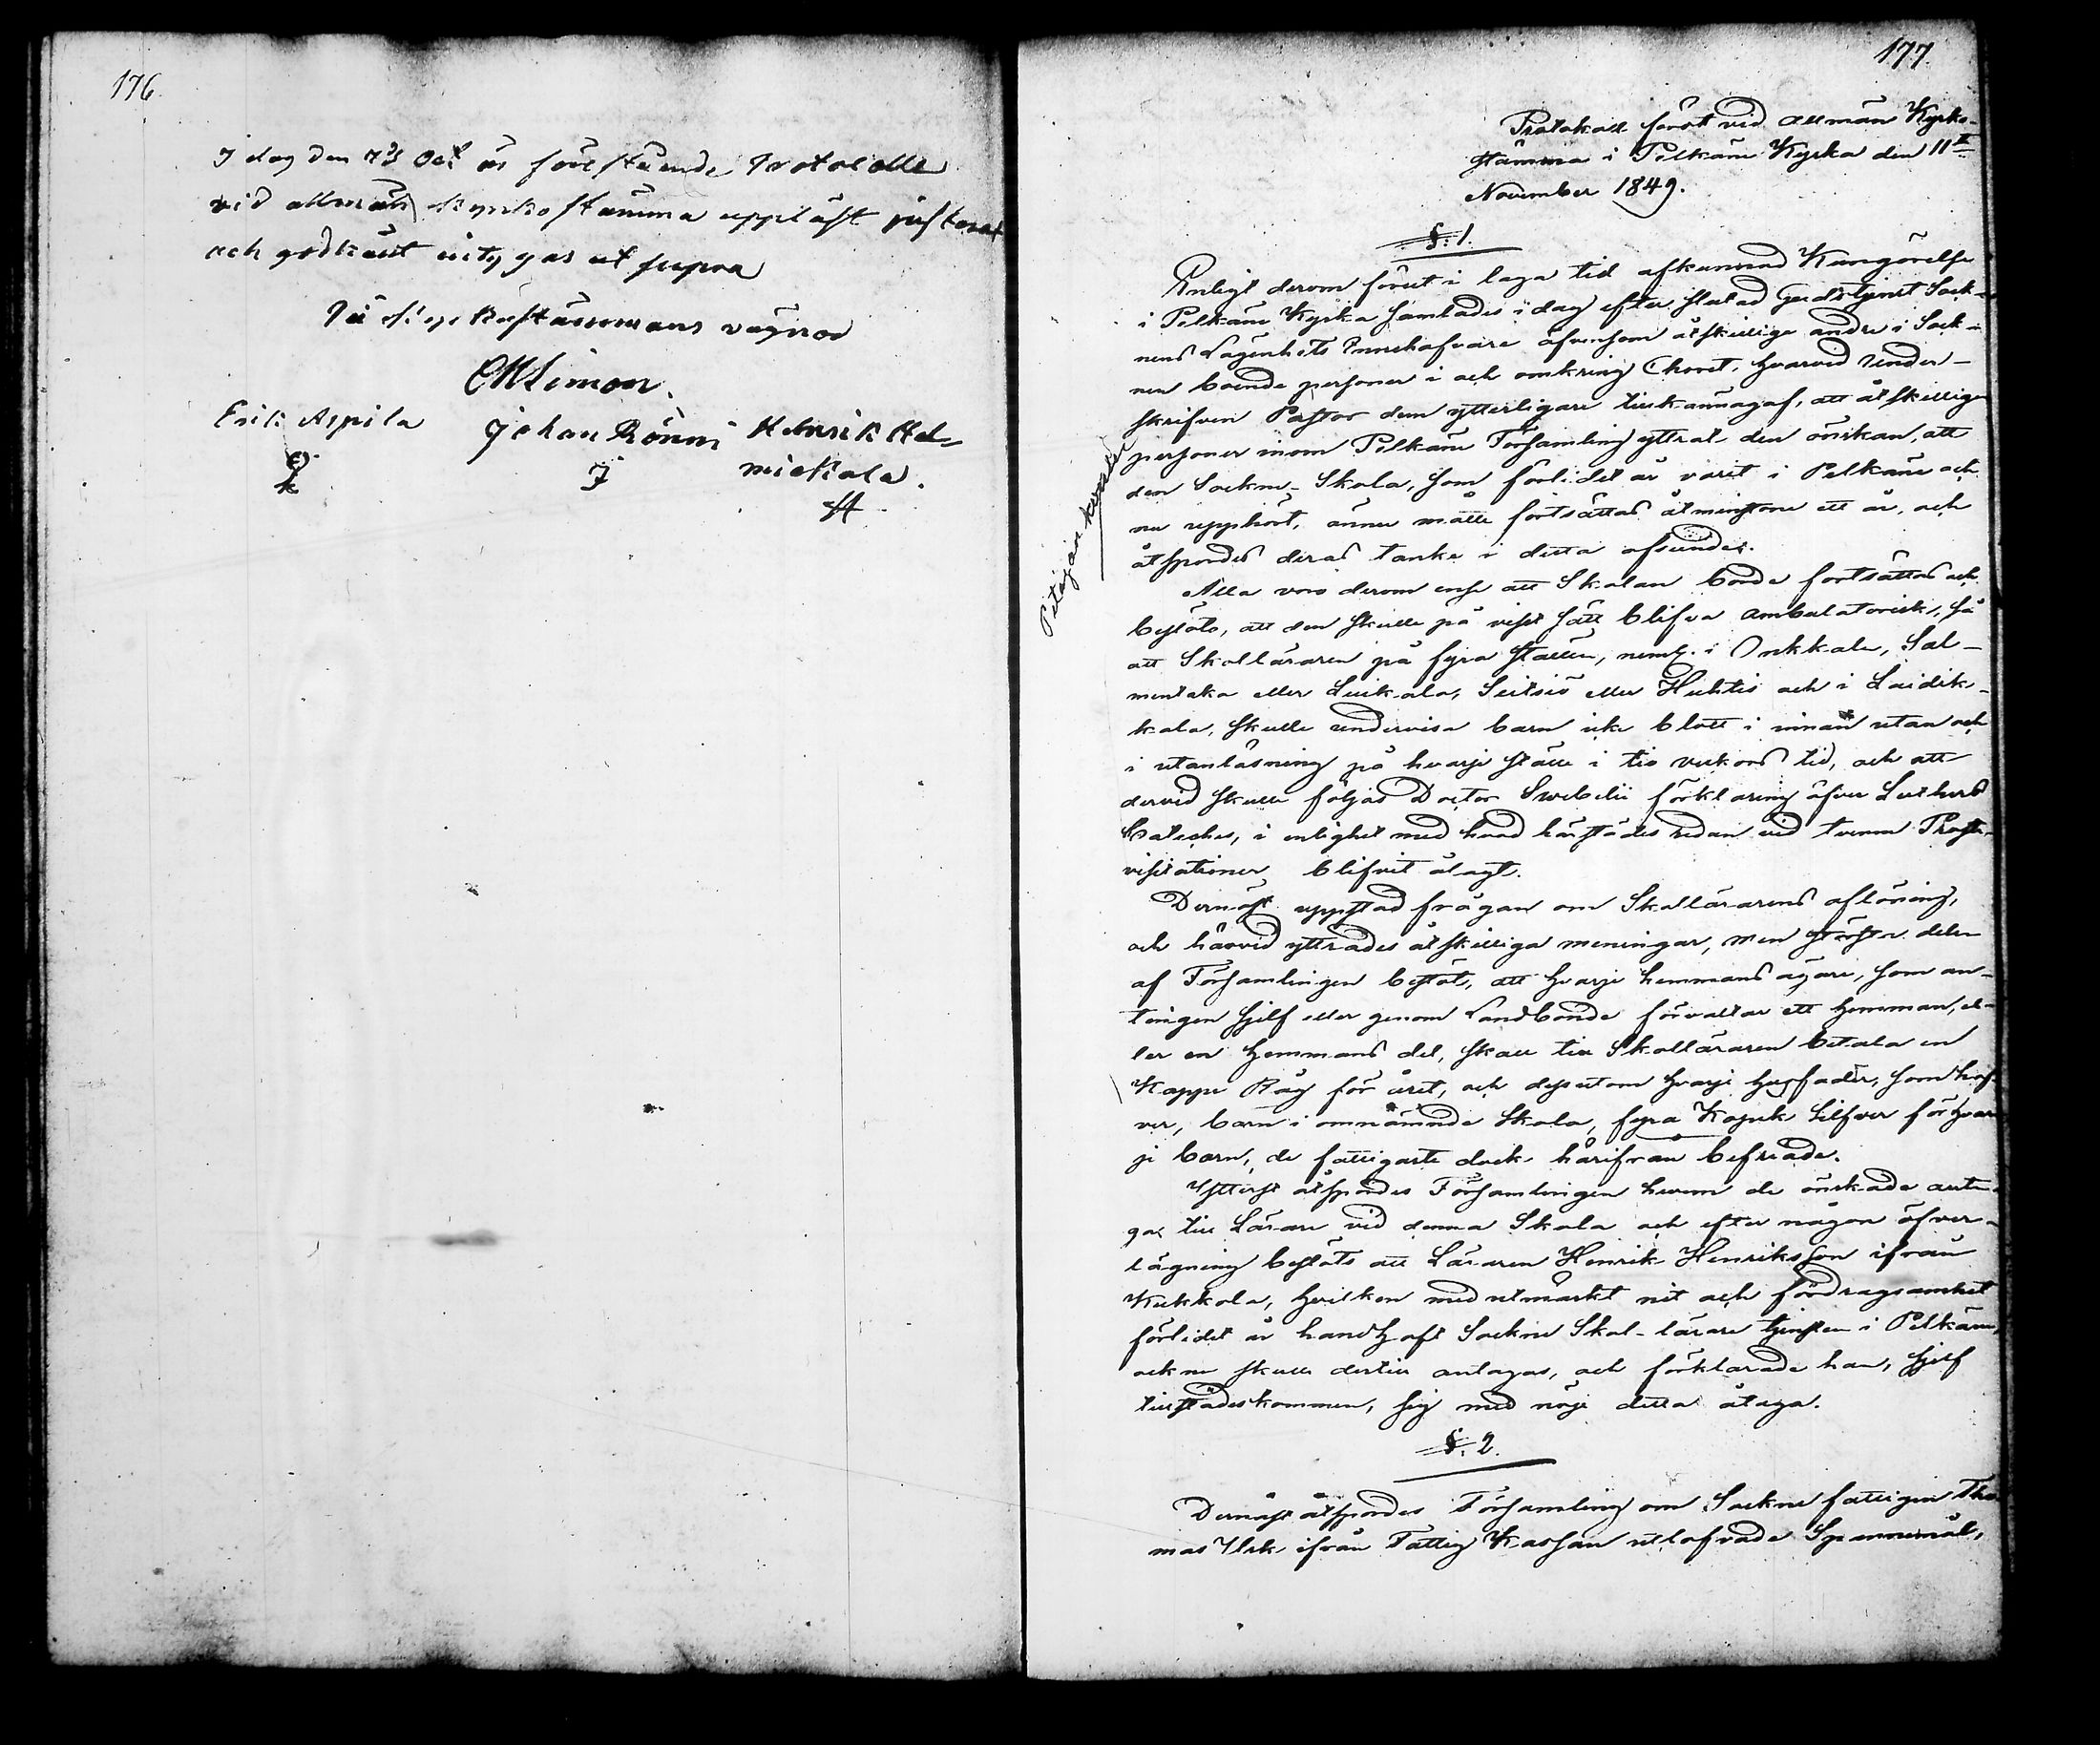 176
I dag den 7 Oct är förestående Protocolle
vid allmän Kyrkostämma uppläst justerat
och godkänt intygas ut supra
På Kyrkostämmans vägnar
Erik Aspila Johan Rönni Henrik Hel-
mickala.
177.
Protokoll fördt vid allmän Kyrko-
stämma i Pelkäne Kyrka den 11te
November 1849.
§. 1.
Enligt derom förut i laga tid afkunnad Kungörelse
i Pelkäne Kyrka samlades i dag efter slutad Gudstjenst Sock-
nens Lägenhets Innehafvare äfvensom åtskillige andre i Sock-
nen boende personer i och omkring Choret, hvarvid Under-
skrifven Pastor dem ytterligare tillkännagaf, att åtskillige
personer inom Pelkäne Församling yttrat den önskan, att
den Sockne-Skola, som förlidet år varit i Pelkäne och
nu upphört, ännu måtte fortsättas åtminstone ett år, och
åtspordes deras tanke i detta afseende.
Alla voro derom ense att Skolan borde fortsättas och
beslöts, att den skulle på visst sätt blifva ambulatorisk, så
att Skolläraren på fyra ställen, neml. i Onkkala, Sal-
mentaka eller Luikala, Seitsiö eller Huhtis och i Laidik-
kala, skulle undervisa barn icke blott i innan utan och
i utanläsning på hvarje ställe i tio veckors tid, och att
dervid skulle följas Doctor Swebelii förklaring öfver Luthers
Cateches, i enlighet med hvad härstädes redan vid tvenne Prosts-
visitationer blifvit ålagt.
Dernäst uppstod frågan om Skollärarens aflöning,
och härvid yttrades åtskilliga meningar, men största delen
af Församlingen beslöt, att hvarje hemmans ägare, som an-
tingen sjelf eller genom Landbonde förvaltar ett hemman, el-
ler en hemmans del, skall till Skolläraren betala en
Kappe Råg för året, och dessutom hvarje husfader, som haf-
ver, barn i omnämnde Skola, fyra Kopek Silfver för hvar-
je barn, de fattigaste dock härifrån befriade.
Ytterst åtspordes Församlingen hvem de önskade anta-
ga till Lärare vid denna Skola och efter någon öfver-
lägning beslöts att Läraren Henrik Henriksson ifrån
Kukkola, hvilken med utmärkt nit och fördragsamhet
förlidet år handhaft Sockne Skol-lärare tjensten i Pelkäne,
och nu skulle dertill antagas, och förklarade han, sjelf
tillstädeskommen, sig med nöje detta åtaga.
§. 2.
Dernäst åtspordes Församling om Sockne fattigen Tho-
mas ifrån Fattig Kassan utlofvade Spannmål,